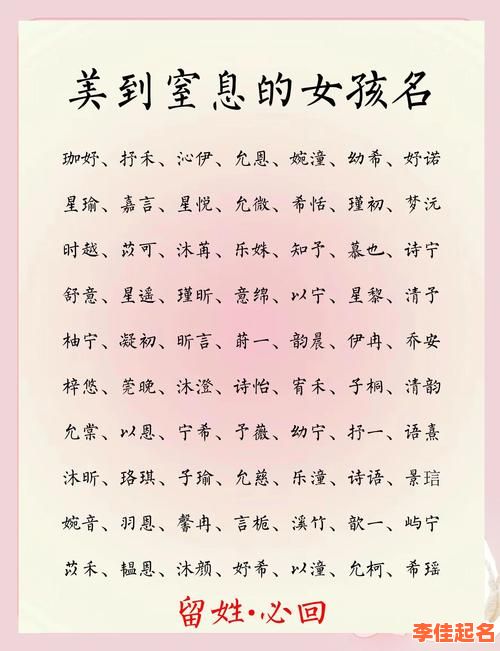 美到窒息的女孩名
珈妤、抒禾、沁伊、允恩、婉潼、幼希、妤诺
星瑜、嘉言、星悦、允微、希恬、瑾初、梦沅
时越、苡可、沐苒、乐姝、知予、慕也、诗宁
舒意、星遥、瑾昕、意绵、以宁、星黎、清予
柚宁、凝初、昕言、蔚一、韵晨、伊冉、乔安
梓悠、莞晚、沐澄、诗怡、宥禾、子桐、清韵
允棠、以恩、宁希、予薇、幼宁、抒一、语熹
沐昕、珞琪、子瑜、允慈、乐潼、诗语、景琂
婉音、羽恩、馨冉、言栀、溪竹、歆一、屿宁
苡禾、韫恩、沐颜、妤希、以潼、允柯、希瑶
留姓·必回
李佳起名